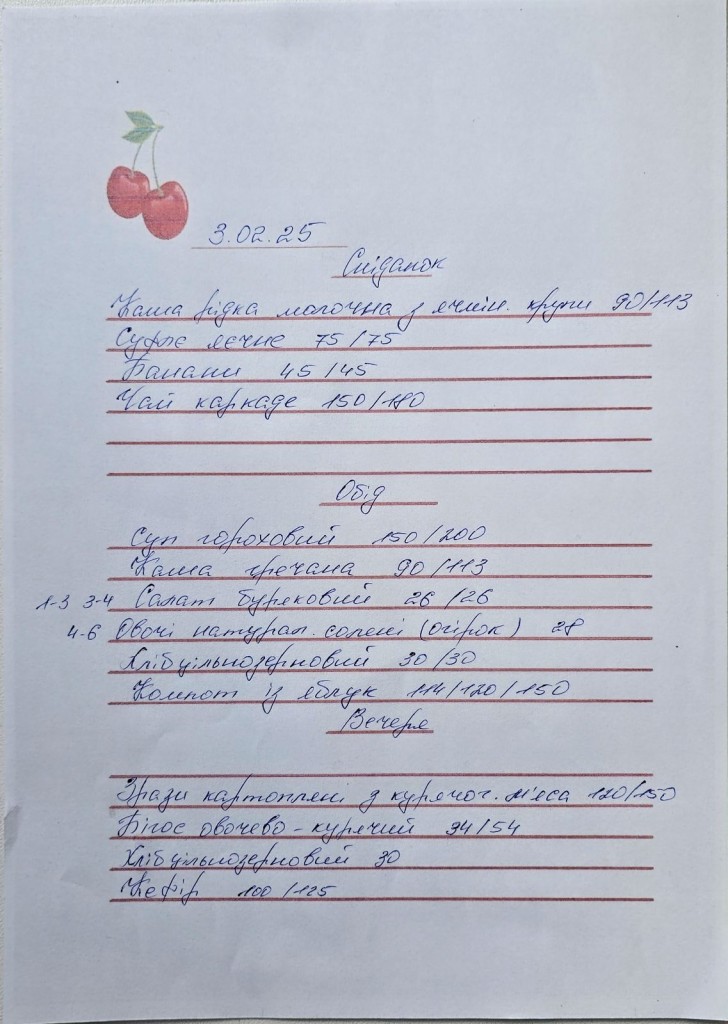 3.02.25
Сніданок
Каша рідка молочна з ячмін. крупи 90/113
Суфле яєчне 75/75
Банани 45/45
Чай каркаде 150/180
Обід
Суп гороховий 150/200
Каша гречана 90/113
1-3 3-4 Салат буряковий 26/26
4-6 Овочі натурал. солені (огірок) 28
Хліб цільнозерновий 30/30
Компот із яблук 114/120/150
Вечеря
Зрази картопляні з курячог. м'яса 120/150
Бігос овочево-курячий 94/54
Хліб цільнозерновий 30
Кефір 100/125